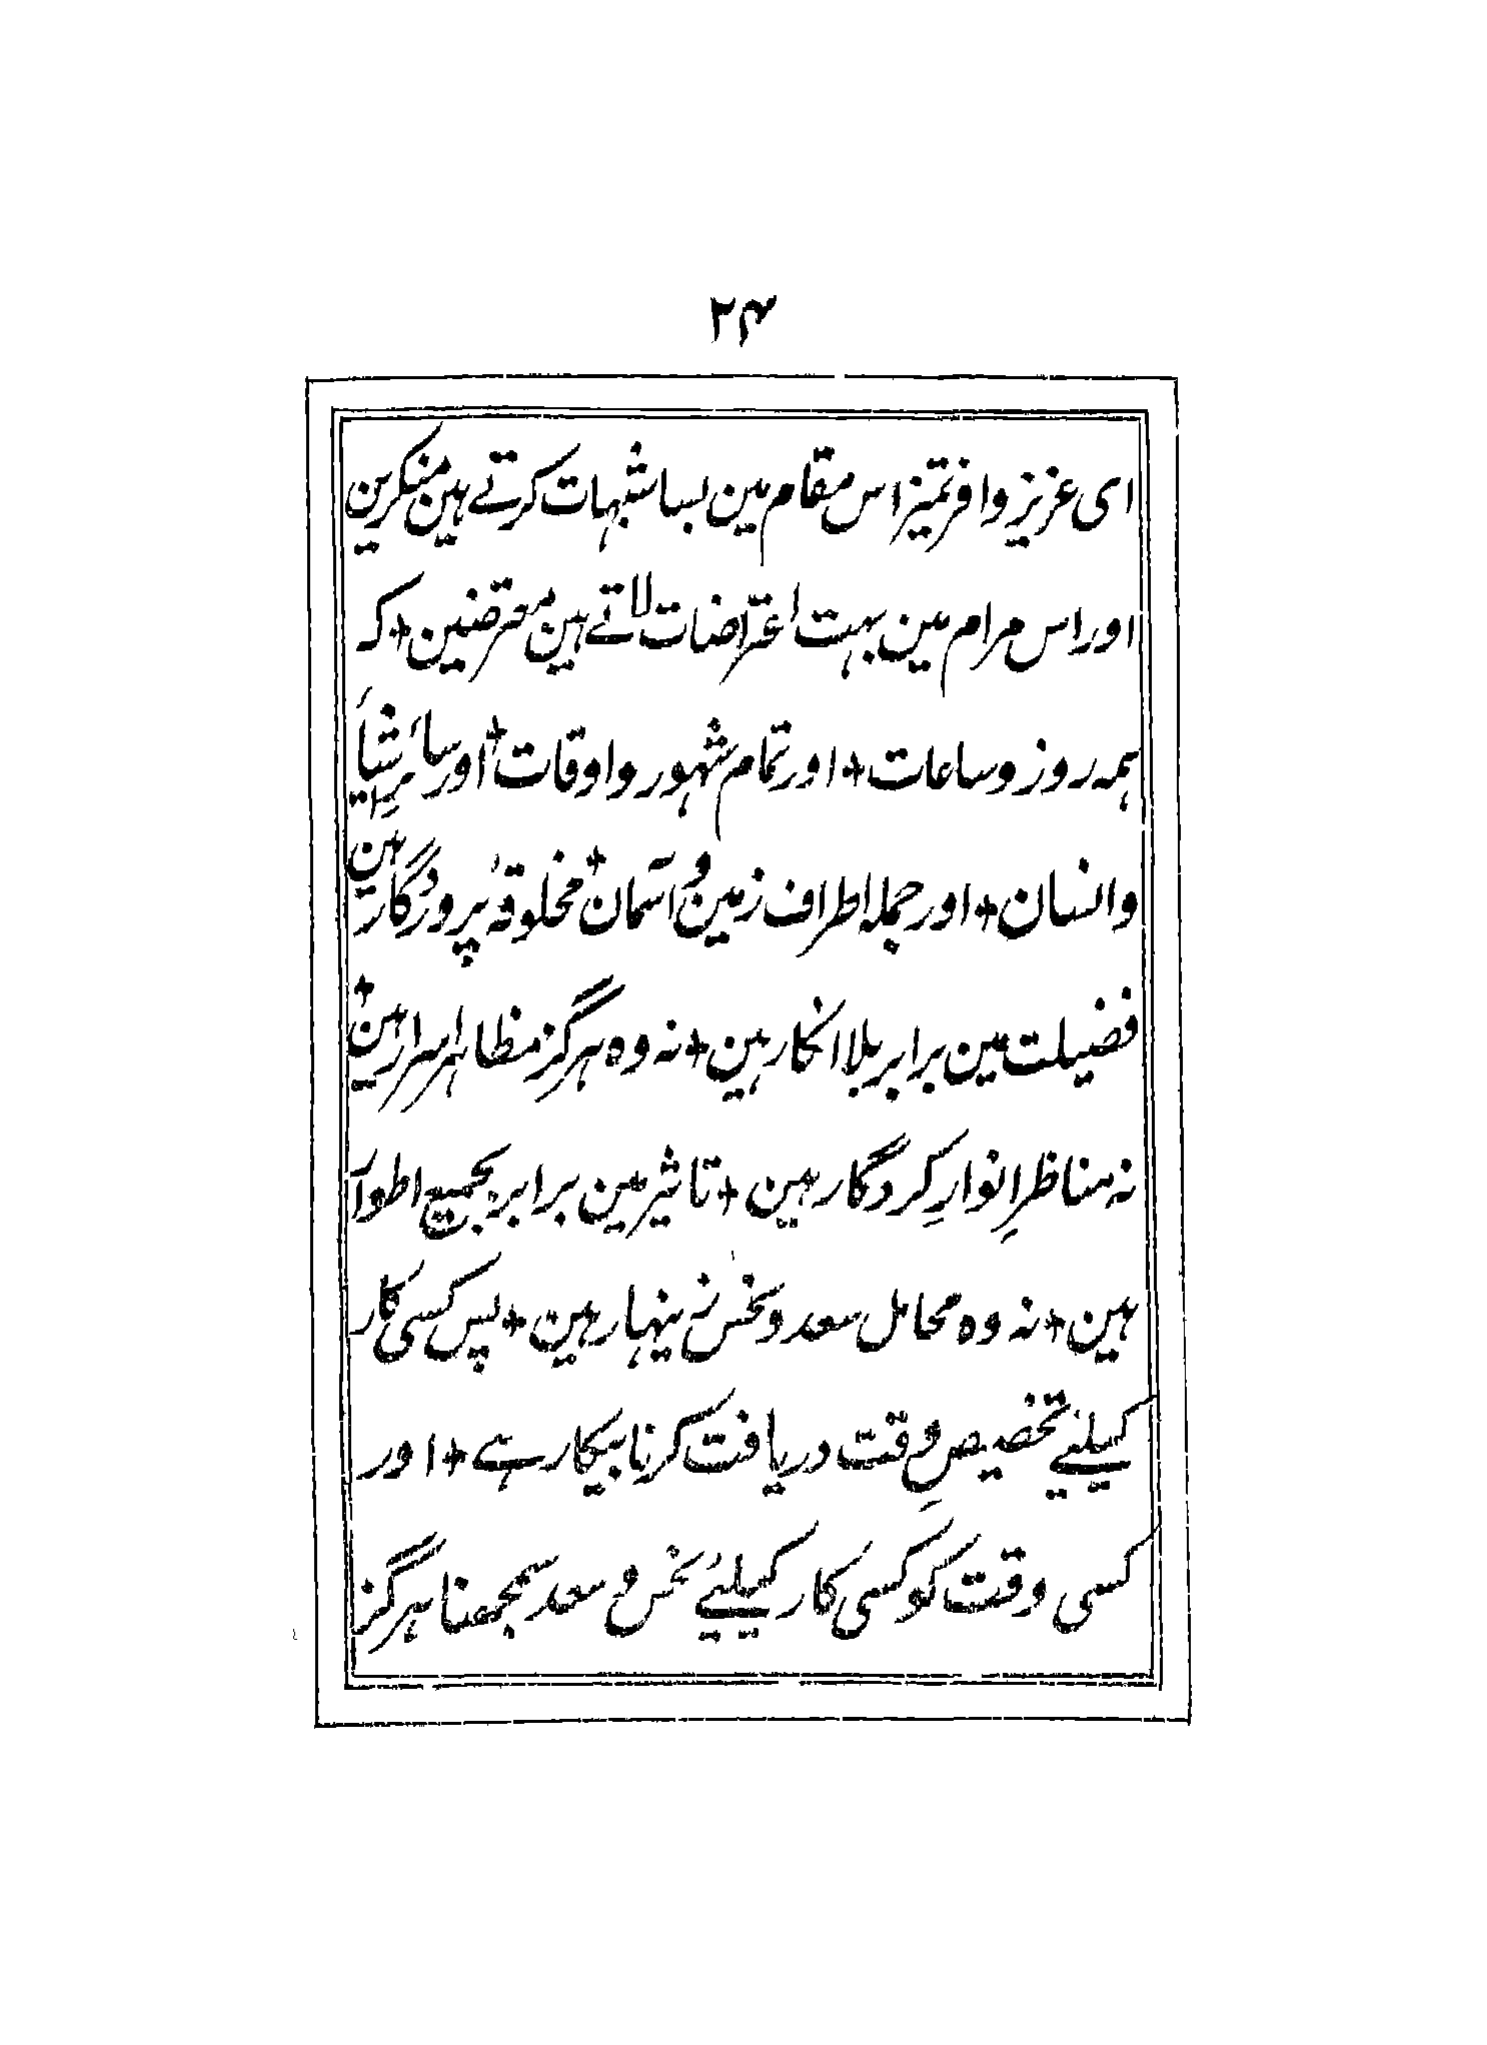 ۲۴
ای عزیز وافر تمیز اس مقام مین بسا شبہات کرتے ہین منکرین
اور اس مرام مین بہت اعتراضات لاتے ہین معترضین + کہ
ہمہ روز و ساعات + اور تمام شہور و اوقات + اور سائر اشیأ
و انسان + اور جملہ اطراف زمین و آسمان + مخلوقۂ پروردگار ہین
فضیلت مین برابر بلا انکار ہین + نہ وہ ہرگز مظاہر اسرار ہین +
نہ مناظرِ انوارِ کردگار ہین + تاثیر مین برابر بجمیع اطوار
ہین + نہ وہ محامل سعد و نحس زینہار ہین + پس کسی کار
کیلیٔے تخصیصِ وقت دریافت کرنا بیکار ہے + اور
کسی وقت کو کسی کار کیلیٔے نحس و سعد سمجھنا ہرگز